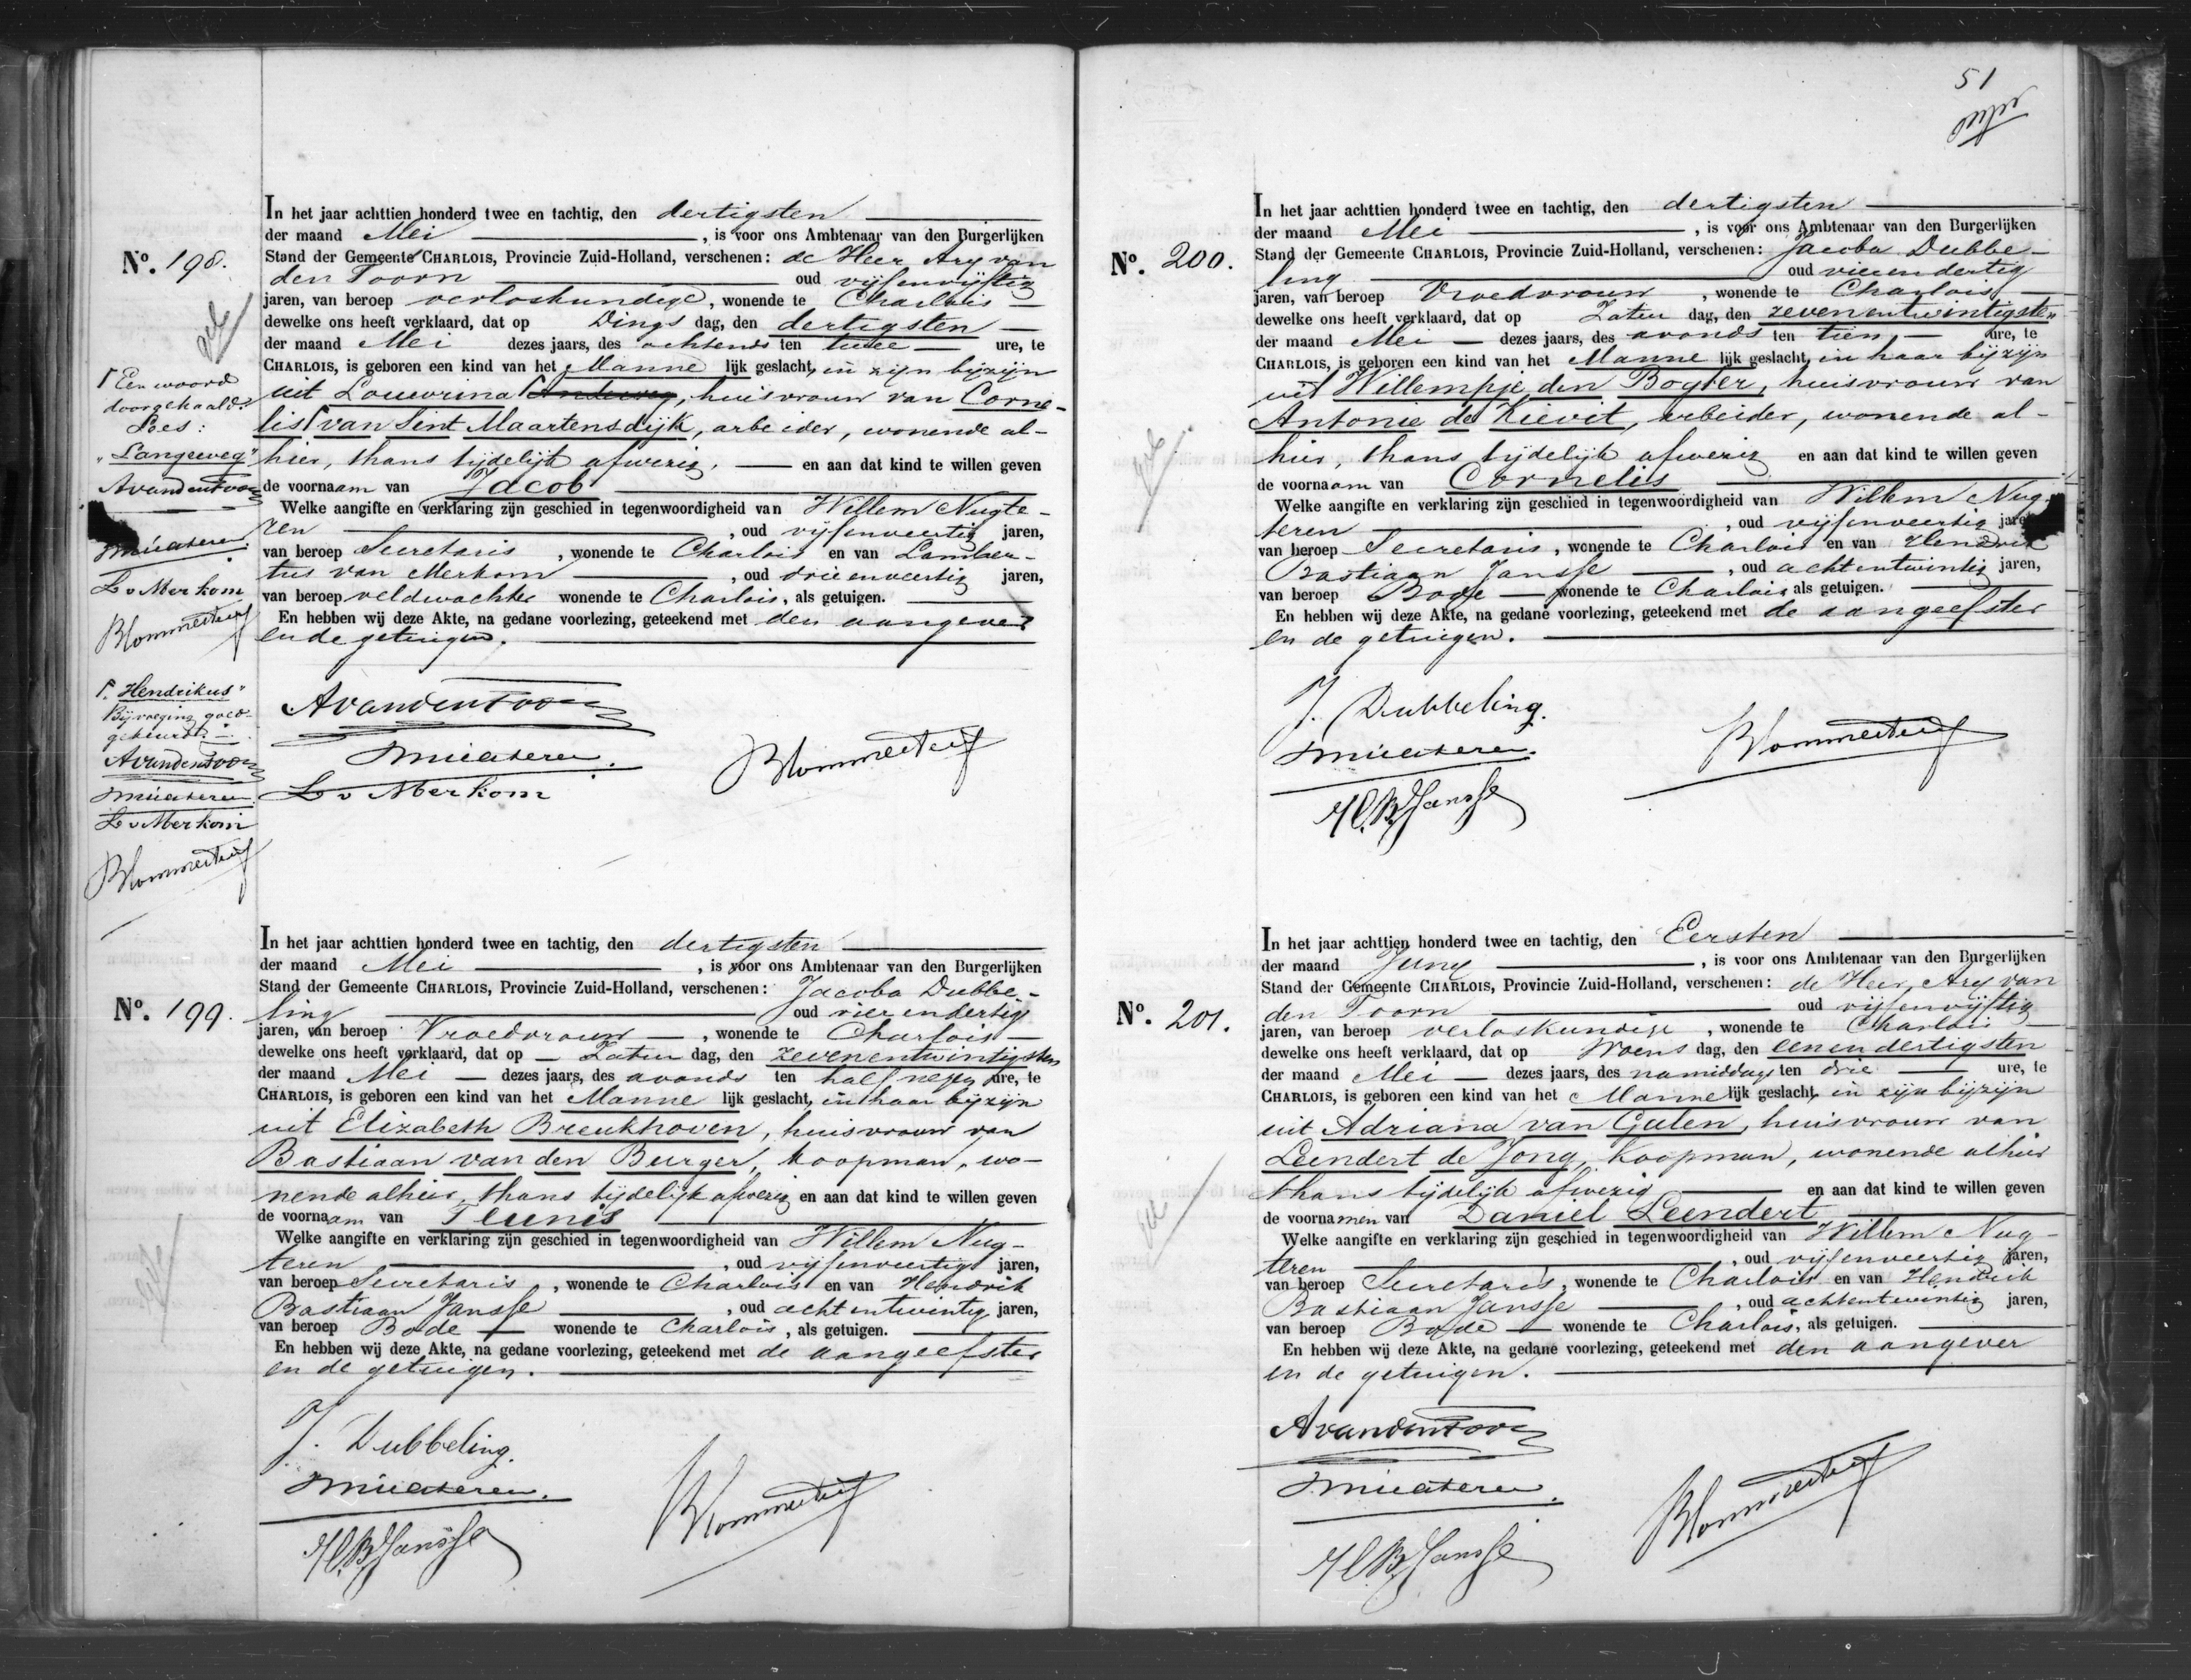 No. 198.
In het jaar achttien honderd twee en tachtig, den dertigsten
der maand Mei , is voor ons Ambtenaar van den Burgerlijken
Stand der Gemeente CHARLOIS, Provincie Zuid-Holland, verschenen: de Heer Ary van
den Toorn oud vijfenvijftig
jaren, van beroep verloskundige, wonende te Charlois
dewelke ons heeft verklaard, dat op Dings dag, den dertigsten
der maand Mei dezes jaars, des ochtends ten twee ure, te
CHARLOIS, is geboren een kind van het Manne lijk geslacht, in zijn bijzijn
uit Louwrina , huisvrouw van Corne-
lis van Sint Maartensdijk, arbeider, wonende al-
hier, thans tijdelijk afwezig, en aan dat kind te willen geven
de voornaam van Jacob
Welke aangifte en verklaring zijn geschied in tegenwoordigheid van Willem Nugte-
ren , oud vijfenveertig jaren,
van beroep Secretaris , wonende te Charlois en van Lamber-
tus van Merkom , oud drieenveertig jaren,
van beroep veldwachter wonende te Charlois, als getuigen.
En hebben wij deze Akte, na gedane voorlezing, geteekend met den aangever
en de getuigen.
AvandenToorn
WNugteren.
L v Merkom
Blommesteijn
Een woord
doorgehaald.
Lees:
"Langeweg"
AvandenToorn
WNugteren.
L v Merkom
Blommesteijn
"Hendrikus"
Bijvoeging goed-
gekeurd.
AvandenToorn
WNugteren.
L v Merkom
Blommesteijn
No. 199.
In het jaar achttien honderd twee en tachtig, den dertigsten
der maand Mei , is voor ons Ambtenaar van den Burgerlijken
Stand der Gemeente CHARLOIS, Provincie Zuid-Holland, verschenen: Jacoba Dubbe-
ling oud vierendertig
jaren, van beroep Vroedvrouw , wonende te Charlois
dewelke ons heeft verklaard, dat op Zatur dag, den zevenentwintigsten
der maand Mei dezes jaars, des avonds ten half negen ure, te
CHARLOIS, is geboren een kind van het Manne lijk geslacht, in haar bijzijn
uit Elizabeth Breukhoven, huisvrouw van
Bastiaan van den Burger, koopman, wo-
nende alhier, thans tijdelijk afwezig en aan dat kind te willen geven
de voornaam van Teunis
Welke aangifte en verklaring zijn geschied in tegenwoordigheid van Willem Nug-
teren , oud vijfenveertig jaren,
van beroep Secretaris , wonende te Charlois en van Hendrik
Bastiaan Jansse , oud achtentwintig jaren,
van beroep Bode wonende te Charlois, als getuigen.
En hebben wij deze Akte, na gedane voorlezing, geteekend met de aangeefster
en de getuigen.
J. Dubbeling.
WNugteren.
H.B.Jansse
Blommesteijn
51
No. 200.
In het jaar achttien honderd twee en tachtig, den dertigsten
der maand Mei , is voor ons Ambtenaar van den Burgerlijken
Stand der Gemeente CHARLOIS, Provincie Zuid-Holland, verschenen: Jacoba Dubbe-
ling oud vierendertig
jaren, van beroep Vroedvrouw , wonende te Charlois
dewelke ons heeft verklaard, dat op Zatur dag, den zevenentwintigsten
der maand Mei dezes jaars, des avonds ten tien ure, te
CHARLOIS, is geboren een kind van het Manne lijk geslacht, in haar bijzijn
uit Willempje den Boyter, huisvrouw van
Antonie de Kievit, arbeider, wonende al-
hier, thans tijdelijk afwezig en aan dat kind te willen geven
de voornaam van Cornelis
Welke aangifte en verklaring zijn geschied in tegenwoordigheid van Willem Nug-
teren , oud vijfenveertig jaren,
van beroep Secretaris, wonende te Charlois en van Hendrik
Bastiaan Jansse , oud achtentwintig jaren,
van beroep Bode wonende te Charlois, als getuigen.
En hebben wij deze Akte, na gedane voorlezing, geteekend met de aangeefster
en de getuigen.
J. Dubbeling.
WNugteren.
H.B.Jansse
Blommesteijn
No. 201.
In het jaar achttien honderd twee en tachtig, den Eersten
der maand Juny , is voor ons Ambtenaar van den Burgerlijken
Stand der Gemeente CHARLOIS, Provincie Zuid-Holland, verschenen: de Heer, Ary van
den Toorn oud vijfenvijftig
jaren, van beroep verloskundige , wonende te Charlois
dewelke ons heeft verklaard, dat op Woens dag, den eenendertigsten
der maand Mei dezes jaars, des namiddags ten drie ure, te
CHARLOIS, is geboren een kind van het Manne lijk geslacht, in zijn bijzijn
uit Adriana van Galen, huisvrouw van
Leendert de Jong, koopman, wonende alhier
thans tijdelijk afwezig en aan dat kind te willen geven
de voornamen van Daniel Leendert
Welke aangifte en verklaring zijn geschied in tegenwoordigheid van Willem Nug-
teren , oud vijfenveertig jaren,
van beroep Secretaris, wonende te Charlois en van Hendrik
Bastiaan Jansse , oud achtentwintig jaren,
van beroep Bode wonende te Charlois, als getuigen.
En hebben wij deze Akte, na gedane voorlezing, geteekend met den aangever
en de getuigen.
AvandenToorn
WNugteren.
H.B.Jansse
Blommesteijn